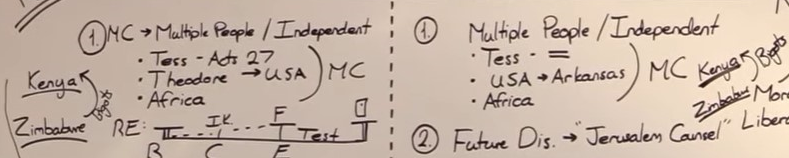 ① MC → Multiple People / Independent
• Tess - Acts 27
• Theodore → USA
• Africa
MC
Kenya
Bigots
Zimbabwe
RE:
I.K.
F
Test
B
C
F
① Multiple People / Independent
• Tess - =
• USA → Arkansas
• Africa
MC
Kenya
Bigots
Zimbabwe
② Future Dis. → "Jerusalem Counsel"